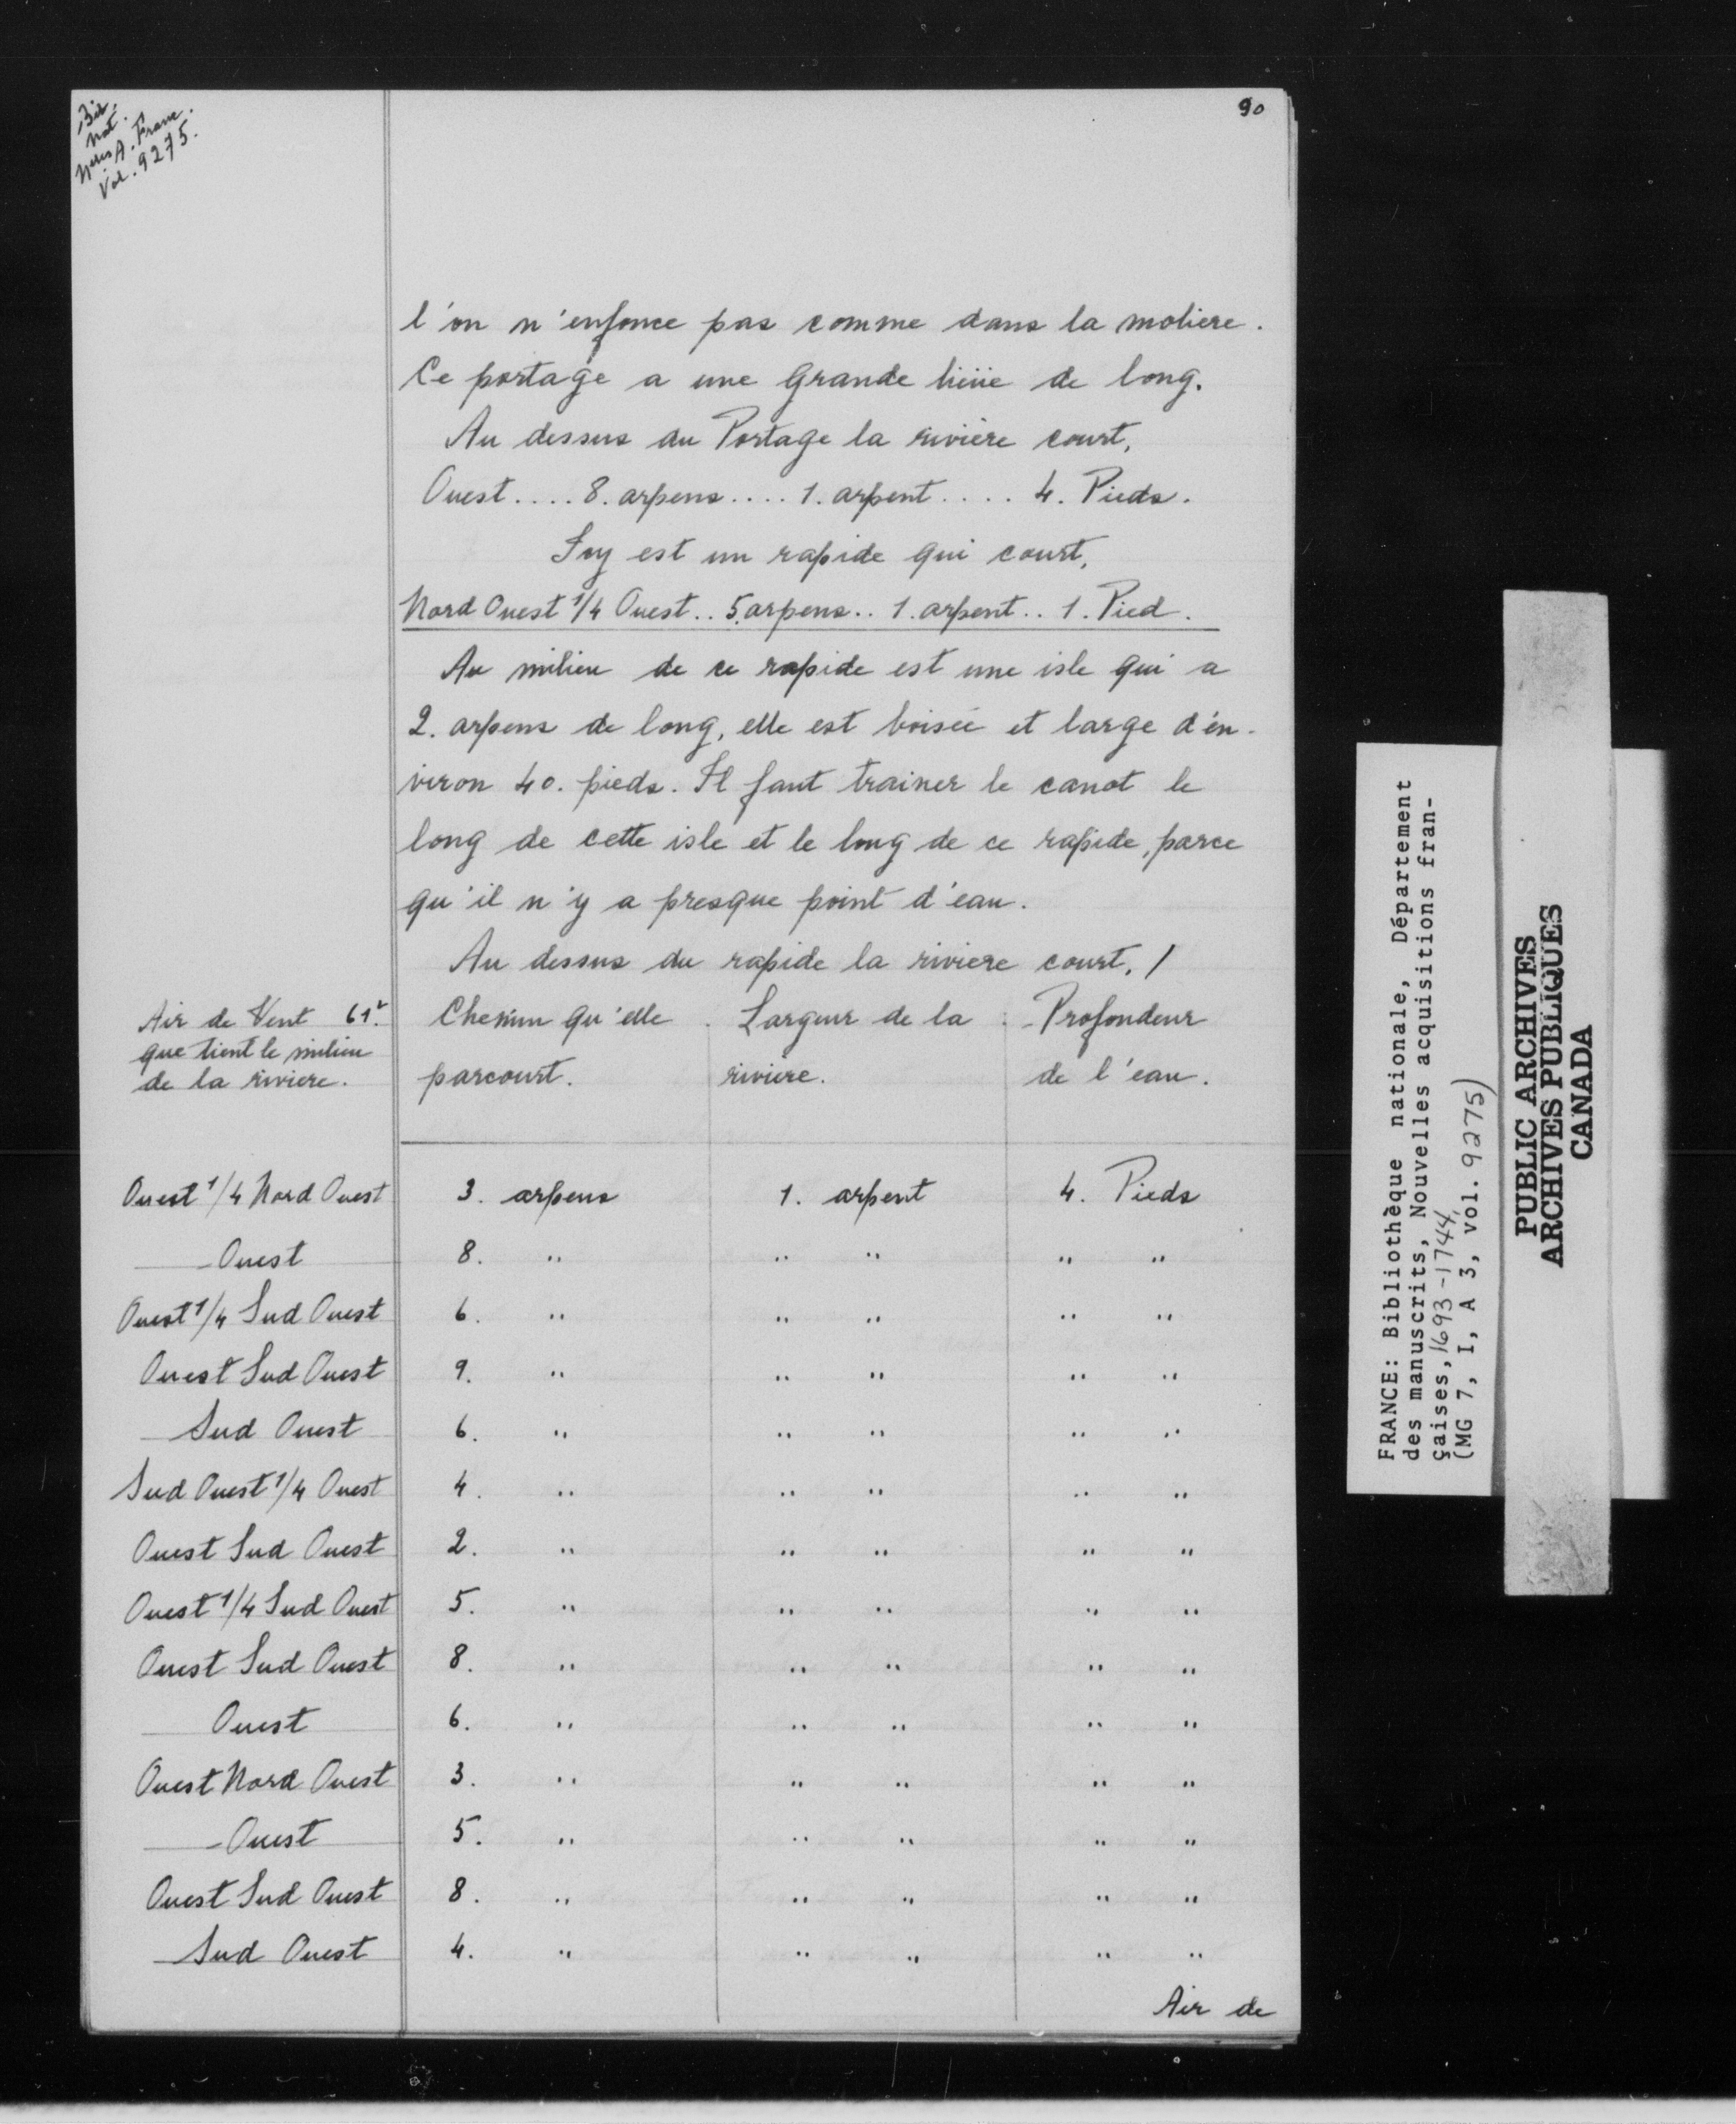 Bib.
nat.
Nelles A. Franc.
Vol. 9275.
90
l'on n'enfonce pas comme dans la moliere.
Ce portage a une grande liëue de long.
Au dessus du Portage la rivière court,
Ouest.... 8. arpens.... 1. arpent.... 4. Pieds.
Icy est un rapide qui court,
Nord Ouest 1/4 Ouest.. 5. arpens.. 1. arpent.. 1. Pied.
Au milieu de ce rapide est une isle qui a
2. arpens de long, elle est boisée et large d'en-
viron 40. pieds. Il faut trainer le canot le
long de cette isle et le long de ce rapide, parce
qu'il n'y a presque point d'eau.
Au dessus du rapide la riviere court, /
Air de Vent 61. Chemin qu'elle . Largeur de la . Profondeur
que tient le milieu
de la riviere. parcourt. riviere. de l'eau.
Ouest 1/4 Nord Ouest 3. arpens 1. arpent 4. Pieds
Ouest 8. " " " " "
Ouest 1/4 Sud Ouest 6. " " " " "
Ouest Sud Ouest 9. " " " " "
Sud Ouest 6. " " " " "
Sud Ouest 1/4 Ouest 4. " " " " "
Ouest Sud Ouest 2. " " " " "
Ouest 1/4 Sud Ouest 5. " " " " "
Ouest Sud Ouest 8. " " " " "
Ouest 6. " " " " "
Ouest Nord Ouest 3. " " " " "
Ouest 5. " " " " "
Ouest Sud Ouest 8. " " " " "
Sud Ouest 4. " " " " "
Air de
FRANCE: Bibliothèque nationale, Département
des manuscrits, Nouvelles acquisitions fran-
çaises, 1693-1744
(MG 7, I, A 3, vol. 9275)
PUBLIC ARCHIVES
ARCHIVES PUBLIQUES
CANADA